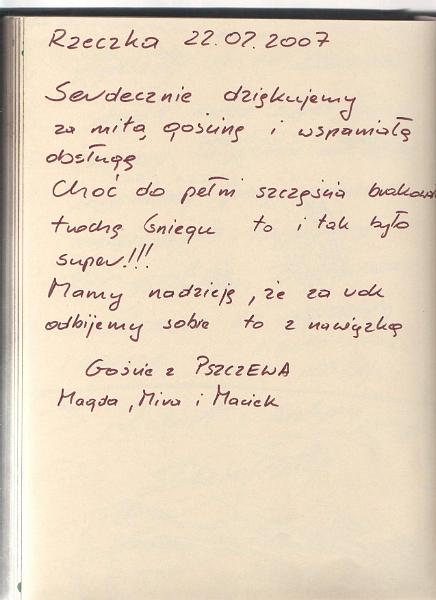 Rzeczka 22.02.2007
Serdecznie dziękujemy
za miłą gościnę i wspaniałą
obsługę
Choć do pełni szczęścia brakowało
trochę śniegu to i tak było
super!!!
Mamy nadzieję, że za rok
odbijemy sobie to z nawiązką
Goście z PSZCZEWA
Magda, Mira i Maciek